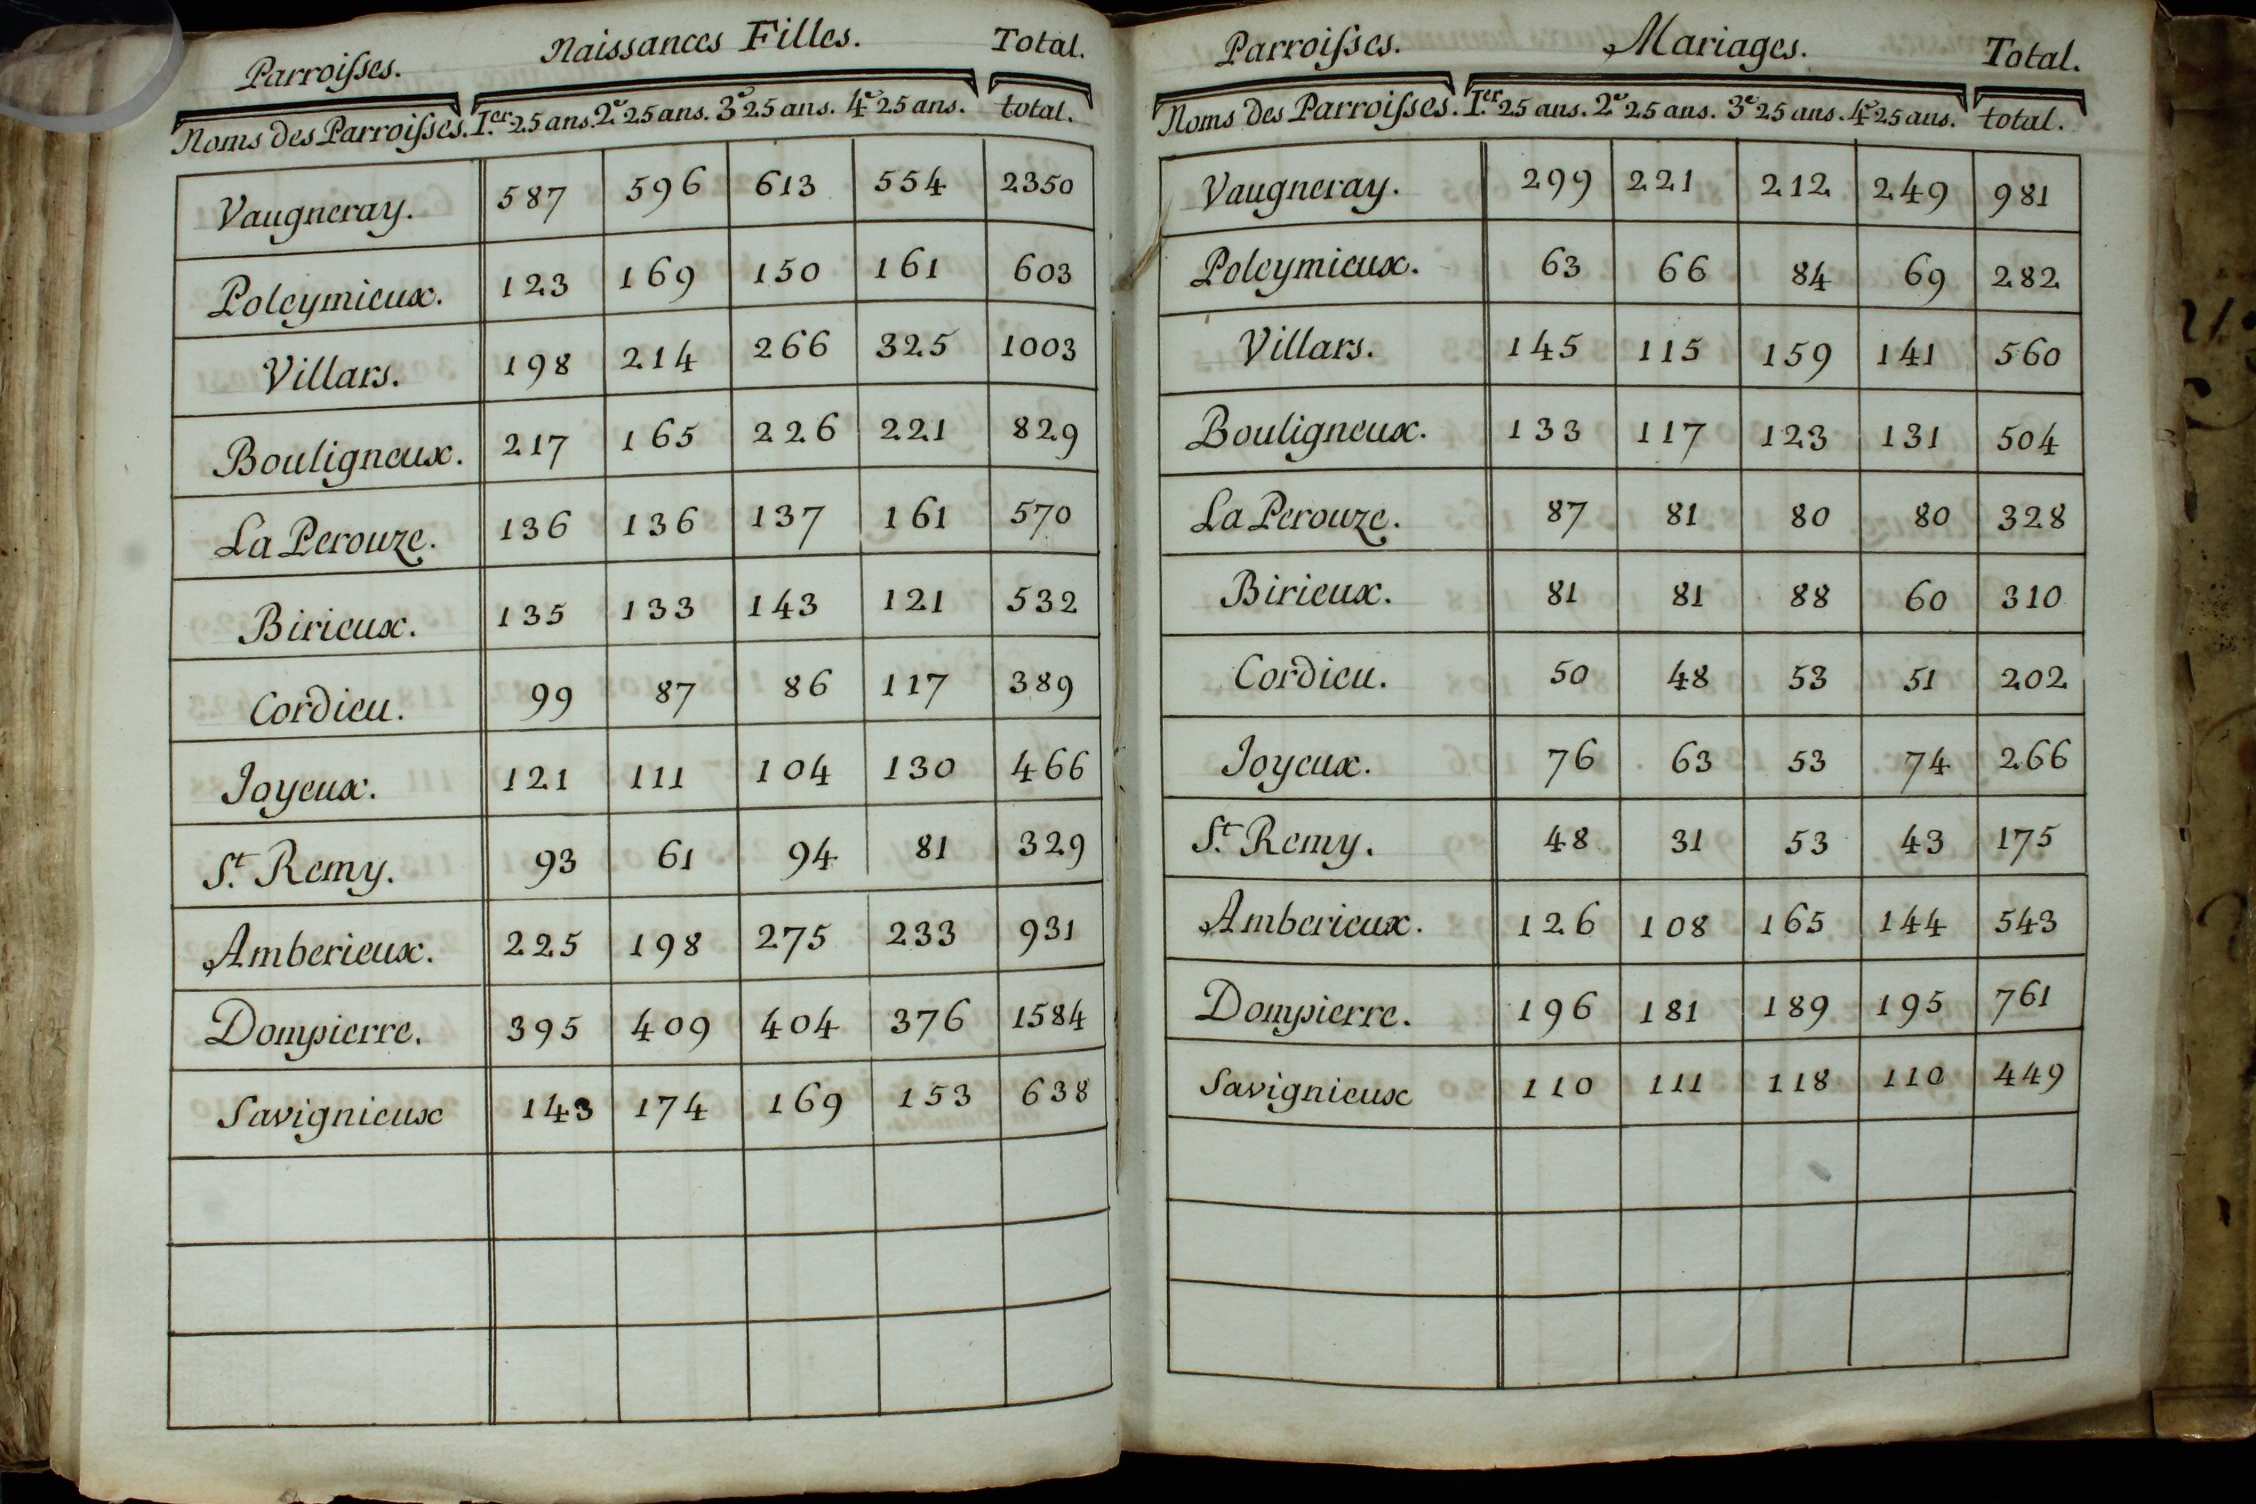 Parroisses. Naissances Filles. Total.
Noms des Parroisses. I.er 25 ans. 2e 25 ans. 3e 25 ans. 4e 25 ans. total.
Vaugneray. 587 596 613 554 2350
Poleymieux. 123 169 150 161 603
Villars. 198 214 266 325 1003
Bouligneux. 217 165 226 221 829
La Perouze. 136 136 137 161 570
Birieux. 135 133 143 121 532
Cordieu. 99 87 86 117 389
Joyeux. 121 111 104 130 466
St. Remy. 93 61 94 81 329
Amberieux. 225 198 275 233 931
Dompierre. 395 409 404 376 1584
Savignieux 143 174 169 153 638
Parroisses. Mariages. Total.
Noms des Parroisses. I.er 25 ans. 2e 25 ans. 3e 25 ans. 4e 25 ans. total.
Vaugneray. 299 221 212 249 981
Poleymieux. 63 66 84 69 282
Villars. 145 115 159 141 560
Bouligneux. 133 117 123 131 504
La Perouze. 87 81 80 80 328
Birieux. 81 81 88 60 310
Cordieu. 50 48 53 51 202
Joyeux. 76 63 53 74 266
St. Remy. 48 31 53 43 175
Amberieux. 126 108 165 144 543
Dompierre. 196 181 189 195 761
Savignieux 110 111 118 110 449